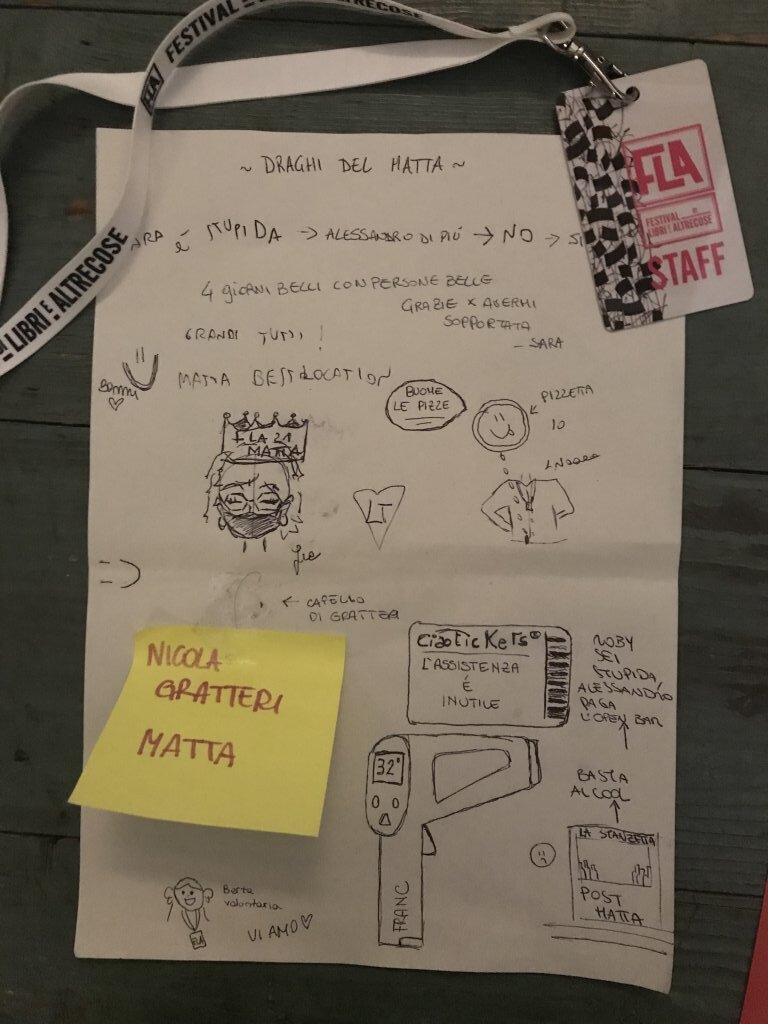 FLA
FESTIVAL DI LIBRI E ALTRECOSE
FLA
FESTIVAL DI
LIBRI E ALTRECOSE
STAFF
DI LIBRI E ALTRECOSE
~ DRAGHI DEL MATTA ~
ARA É STUPIDA → ALESSANDRO DI PIÚ → NO → SI
4 GIORNI BELLI CON PERSONE BELLE
GRAZIE X AVERMI
SOPPORTATA
– SARA
GRANDI TUTTI!
MATTA BEST LOCATION
BUONE
LE PIZZE
PIZZETTA
IO
FLA 21
MATTA
LT
← CAPELLO
DI GRATTERI
NICOLA
GRATTERI
MATTA
ciaoTicKeTs®
L'ASSISTENZA
É
INUTILE
ROBY
SEI
STUPIDA,
ALESSANDRO
PAGA
L'OPEN BAR
32°
FRANC
BASTA
ALCOOL
LA STANZETTA
POST
MATTA
Berta
volontaria
VI AMO
FLA